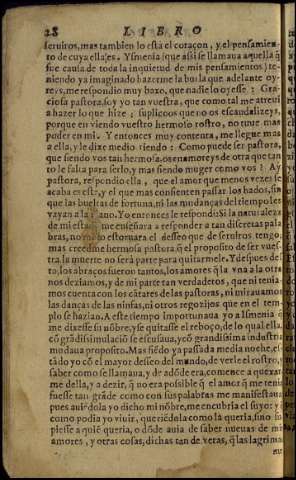 28 LIBRO
seruiros, mas tambien lo està el coraçon, y el pensamien
to de cuya ella es. Ysmenia (que assi se llamaua aquella q̃
fue causa de toda la inquietud de mis pensamientos) te-
niendo ya imaginado hazerme la burla que adelante oy-
reys, me respondio muy baxo, que nadie lo oyesse: Gra-
ciosa pastora, soy yo tan vuestra, que como tal me atreui
a hazer lo que hize; suplicoos que no os escandalizeys,
porque en viendo vuestro hermoso rostro, no tuue mas
poder en mi. Y entonces muy contenta, me llegue mas
a ella, y le dixe medio riendo: Como puede ser pastora,
que siendo vos tan hermosa, os enamoreys de otra que tan
to le falta para serlo, y mas siendo muger como vos? Ay
pastora, respondio ella, que el amor que menos vezes se
acaba es este, y el que mas consienten passar los hados, sin
que las bueltas de fortuna, ni las mudanças del tiempo les
vayan a la mano. Yo entonces le respondi: Si la naturaleza
de mi estado me enseñara a responder a tan discretas pala
bras, no me lo estoruara el desseo que de seruiros tengo,
mas creedme hermosa pastora, q̃ el proposito de ser vues-
tra, la muerte no serà parte para quitarmele. Y despues des
to, los abraços fueron tantos, los amores q̃ la vna a la otra
nos deziamos, y de mi parte tan verdaderos, que ni tenia-
mos cuenta con los cãtares de las pastoras, ni mirauamos
las danças de las ninfas, ni otros regozijos que en el tem-
plo se hazian. A este tiempo importunaua yo a Ismenia
me dixesse su nõbre, y se quitasse el reboço, de lo qual ella
cõ grãdissima disimulaciõ se escusaua, y cõ grandissima industria
mudaua proposito. Mas siẽdo ya passada media noche, es-
tãdo yo cõ el mayor desseo del mũdo, de verle el rostro, y
saber como se llamaua, y de adõde era, comence a quexar
me della, y a dezir, q̃ no era possible q̃ el amor q̃ me tenia
fuesse tan grãde como con sus palabras me manifestaua
pues auiẽdola yo dicho mi nõbre, me encubria el suyo: y q̃
como podia yo viuir, queriẽdola como la queria, sino su
piesse a quiẽ queria, o adõde auia de saber nueuas de mis
amores, y otras cosas, dichas tan de veras, q̃ las lagrimas